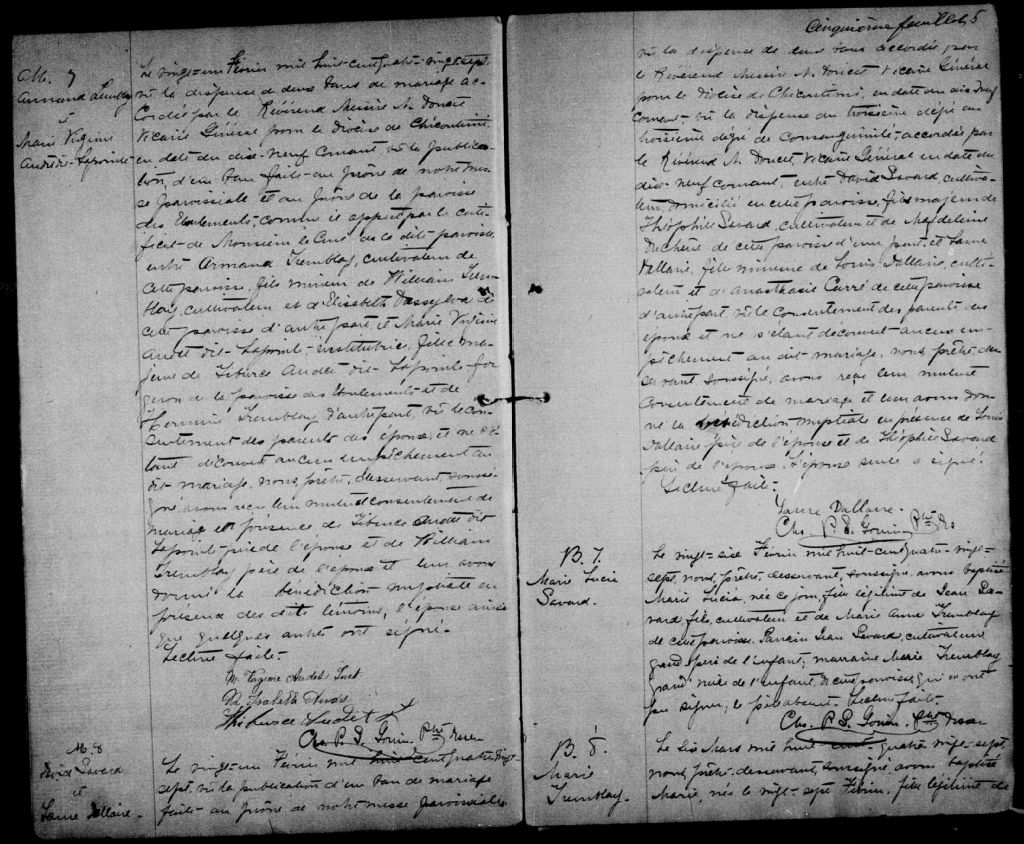 M. 7
Armand Tremblay
et
Marie Virginie
Audet dit Lapointe
Le vingt-un Février mil huit-cent-quatre-vingt-sept,
vu la dispense de deux bans de mariage ac-
cordée par le Révérend Messire A. Doucet
Vicaire Général pour le diocèse de Chicoutimi,
en date du dix-neuf courant, vu la publica-
tion d'un ban faite au prône de notre mes-
se paroissiale et au prône de la paroisse
des Eboulements, comme il appert par le certi-
ficat de Monsieur le Curé de la dite paroisse,
entre Armand Tremblay, cultivateur de
cette paroisse, fils mineur de William Trem-
blay, cultivateur et d'Elisabeth Dassylva de
cette paroisse d'autre part, et Marie Virginie
Audet dit Lapointe, institutrice, fille ma-
jeure de Liberce Audet dit Lapointe for-
geron de la paroisse des Eboulements et de
Hermine Tremblay d'autre part, vu le con-
sentement des parents des époux, et ne s'é-
tant découvert aucun empêchement au
dit mariage, nous, prêtre, desservant, soussi-
gné, avons reçu leur mutuel consentement de
mariage en présence de Liberce Audet dit
Lapointe père de l'épouse et de William
Tremblay père de l'époux et leur avons
donné la bénédiction nuptiale en
présence des dits témoins, l'épouse ainsi
que quelques autres ont signé.
Lecture faite.
M. Virginie Audet Inst
Audet
Chs. P. E. Gouin Ptre Desser
M. 8
David Savard
et
Laure Dallaire
Le vingt-un Février mil huit cent quatre vingt
sept, vu la publication d'un ban de mariage
faite au prône de notre messe paroissiale
Cinquième feuillet 5
vu la dispense de deux bans accordée par
le Révérend Messire A. Doucet Vicaire Général
pour le Diocèse de Chicoutimi, en date du dix-neuf
courant, vu la dispense du troisième degré au
troisième degré de consanguinité accordée par
le Révérend A. Doucet, Vicaire Général en date du
dix-neuf courant, entre David Savard, cultiva-
teur, domicilié en cette paroisse, fils majeur de
Théophile Savard, cultivateur et de Majdeleine
de cette paroisse d'une part, et Laure
Dallaire, fille mineure de Louis Dallaire, culti-
vateur et de Anasthasie Carré de cette paroisse
d'autre part, vu le consentement des parents des
époux et ne s'étant découvert aucun em-
pêchement au dit mariage, nous, prêtre, des-
servant, soussigné, avons reçu leur mutuel
consentement de mariage et leur avons don-
né la bénédiction nuptiale en présence de Louis
Dallaire père de l'épouse et de Théophile Savard
père de l'époux. L'épouse seule a signé.
Lecture faite.
Laure Dallaire
Chs. P. E. Gouin Ptre Des
B. 7.
Marie Lucie
Savard.
Le vingt-six Février mil huit-cent-quatre-vingt-
sept, nous, prêtre, desservant, soussigné, avons baptisé
Marie Lucie, née ce jour, fille légitime de Jean Sa-
vard, fils, cultivateur et de Marie Anne Tremblay
de cette paroisse. Parrain Jean Savard, cultivateur,
grand père de l'enfant; marraine Marie Tremblay
grand mère de l'enfant, de cette paroisse, qui n'ont
pu signer; le père absent. Lecture faite.
Chs. P. E. Gouin Ptre Desser
B. 8.
Marie
Tremblay.
Le six Mars mil huit cent quatre vingt-sept,
nous, prêtre, desservant, soussigné, avons baptisé
Marie, née le vingt-sept Février, fille légitime de